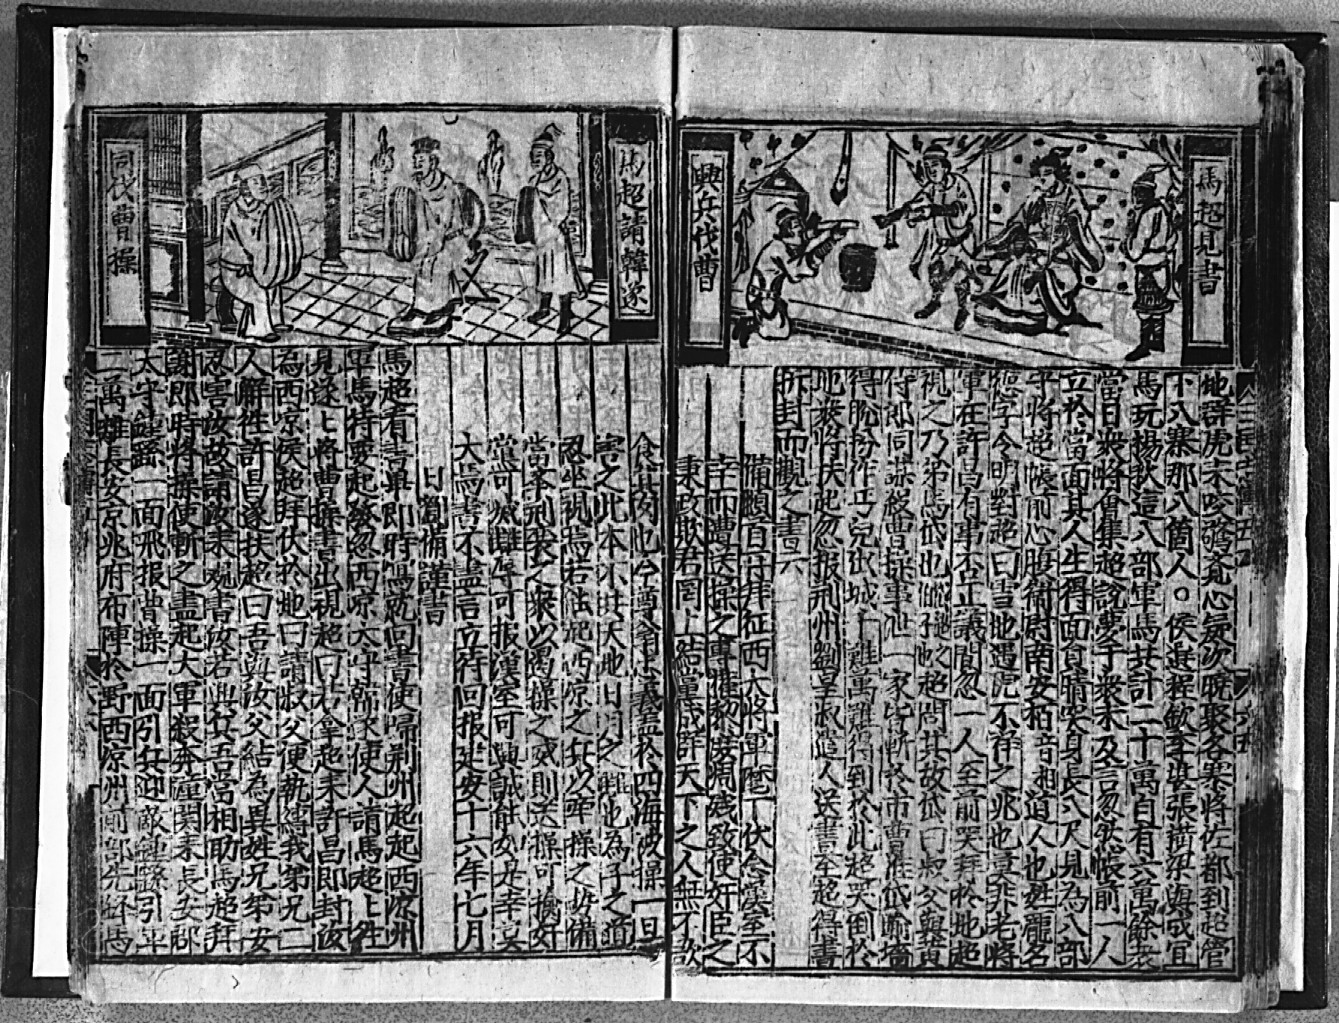 馬超見書
興兵伐曹
地群虎來咬驚覓心疑次曉聚各寨將佐都到超管
下八寨那八箇人○侯選程欽李堪張橫梁興成宜
馬玩楊秋這八部軍馬共計二十萬自有六萬餘衰
當日衆將會集超說夢于衆未及言忽然帳前一人
立於當面其人生得面負睛突身長八尺見為八部
乎將超帳前心腹衛尉南安柏音相道人也姓龐名
德字令明對超曰雪地遇虎不祥之兆也莫非老將
軍在許昌有事不止議間忽一人至前哭拜於地超
視之乃弟馬岱也超問其故岱曰叔父與黃
侍郎同謀殺曹操事泄一家皆斬於市曹惟岱踰墻
得脫扮作丐兒出城千難萬難得到於此超哭倒於
地衆將扶起忽报荊州劉皇叔遣人送書至超得書
拆封而觀之書云
備頓首百拜征西大將軍麾下伏念漢室不
幸而遭
秉政欺君罔上結黨成群天下之人無不欲
馬超請韓遂
同伐曹操
食其肉也今尊翁忠義盖於四海被操一旦
害之此本不共天地日月之讎也為子之道
忍坐視焉若能把西凉之兵以牽操之勢備
當奉荊襄之衆以遏操之威則逆操可擒奸
黨可滅讎辱可报漢室可興誠能如是幸莫
大焉書不盡言立待回报建安十六年七月
日劉備謹書
馬超看書畢即時寫就回書使歸荊州超起西凉州
軍馬特要起發忽西凉太守韓遂使人請馬超上往
見遂上將曹操書出視超曰若拿超来許昌即封汝
為西凉侯超拜伏於地曰請叔父便執縛我弟兄二
人解往許昌遂扶超曰吾與汝父結為異姓兄弟安
忍害汝故請汝来观書汝若興兵吾當相助馬超拜
謝即時將操使斬之盡起大軍殺奔潼関来長安郡
太守鍾繇一面飛报曹操一面引兵迎敵鍾繇引軍
二萬離長安京兆府布陣於野西凉州前部先鋒馬